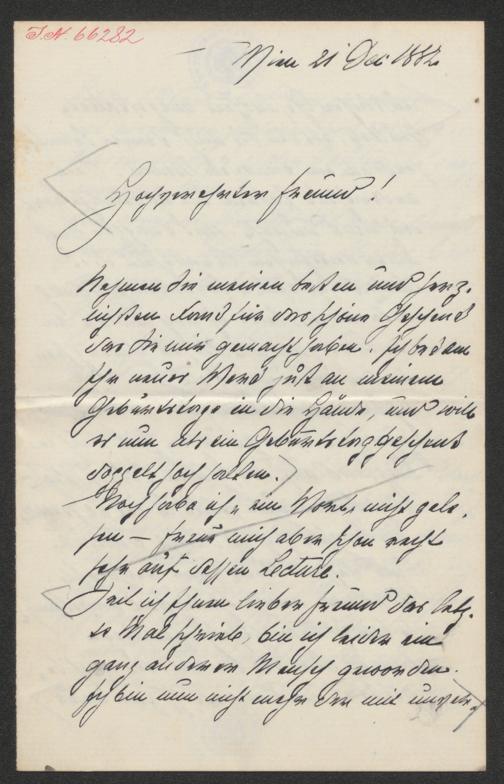 I.N. 66282
Wien 21 Dec 1882
Hochverehrter Freund!
Nehmen Sie meinen besten und herz-
lichsten Dank für das schöne Geschenk
das Sie mir gemacht haben. Ich bekam
Ihr neues Werk just an meinem
Geburtstage in die Hände, und will
es nun als ein Geburtstagsgeschenk
doppelt hoch halten.
Noch habe ich ein Wort nicht gele-
sen — freue mich aber schon recht
sehr auf dessen Lectüre.
Seit ich Ihnen lieber Freund das letz-
te Mal schrieb, bin ich leider ein
ganz anderer Mensch geworden.
Ich bin nun nicht mehr der mit